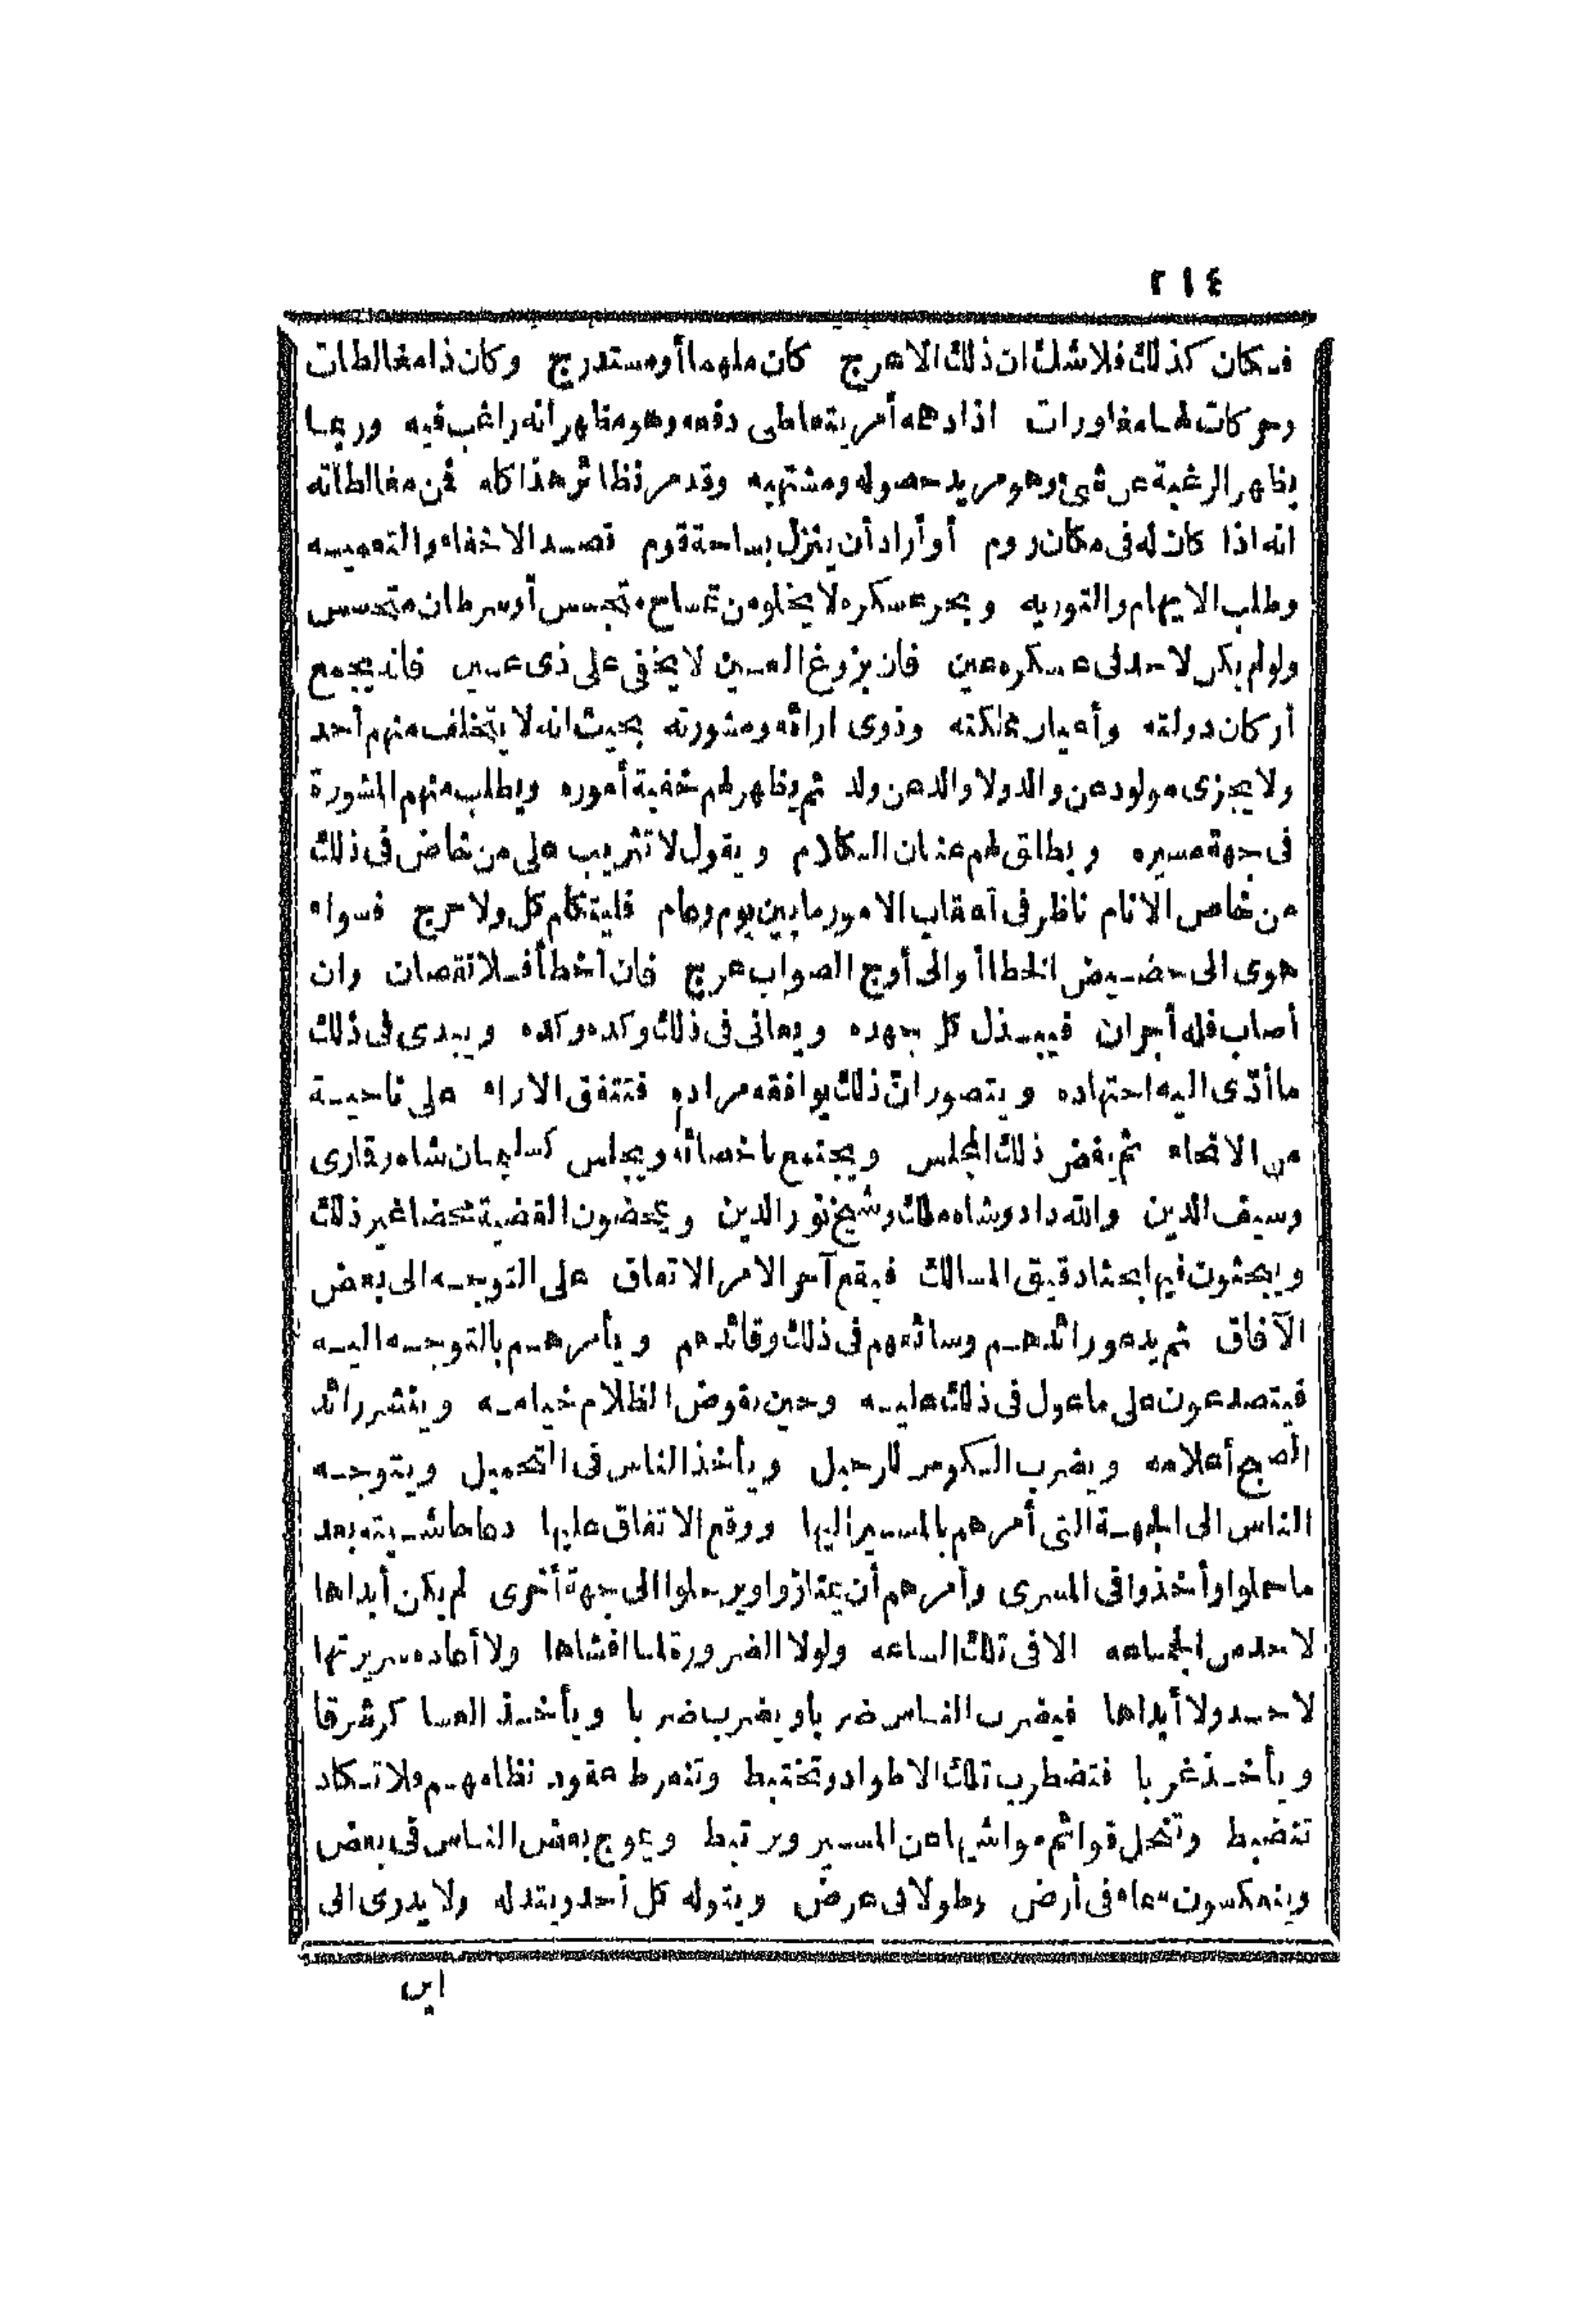 ٢١٤
فكان كذلك فلا شك ان ذلك الاعرج كان ملهما أو مستدرج وكان ذا مغالطات
وحركات لها مغاورات اذا دهمه أمر يتعاطى دفعه وهو مظهر أنه راغب فيه وربما
يظهر الرغبة عن شئ وهو مريد حصوله ومشتهيه وقد مر نظائر هذا كله فمن مغالطاته
انه اذا كان له فى مكان روم أو أراد أن ينزل بساحة قوم قصد الاخفاء والتعميه
وطلب الايهام والتوريه وبحر عسكره لا يخلو من تمساح متجسس أو سرطان متحسس
ولو لم يكن لاحد فى عسكره عين فان بزوغ العين لا يخفى على ذى عين فانه يجمع
أركان دولته وأعيان مملكته وذوى ارائه ومشورته بحيث انه لا يتخلف منهم أحد
ولا يجزى مولود عن والد ولا والد عن ولد ثم يظهر لهم خفية أموره ويطلب منهم المشورة
فى جهة مسيره ويطلق لهم عنان الكلام ويقول لا تثريب على من خاض فى ذلك
من خاص الانام ناظر فى أعقاب الامور ما بين يوم وعام فليتكلم كل ولا حرج فسواء
هوى الى حضيض الخطا أو الى أوج الصواب عرج فان أخطأ فلا نقصان وان
أصاب فله أجران فيبذل كل جهده ويعانى فى ذلك وكده وكده ويبدى فى ذلك
ما أدّى اليه اجتهاده ويتصور ان ذلك يوافقه مراده فتتفق الاراء على ناحية
من الانحاء ثم يفض ذلك المجلس ويجتمع باخصائه ويجلس كسليمان شاه وقمارى
وسيف الدين والله داد وشاه ملك وشيخ نور الدين ويمحضون القضية محضا غير ذلك
ويبحثون فيها بحثا دقيق المسالك فيقع آخر الامر الاتفاق على التوجه الى بعض
الآفاق ثم يدعو رائدهم وسائقهم فى ذلك وقائدهم ويأمرهم بالتوجه اليه
فيتصدعون على ما عول فى ذلك عليه وحين يقوض الظلام خيامه وينشر رائد
الصبح أعلامه ويضرب الكوس للرحيل ويأخذ الناس فى التحميل ويتوجه
الناس الى الجهة التى أمرهم بالمسير اليها ووقع الاتفاق عليها دعا حاشيته بعد
ما حملوا وأخذوا فى المسرى وأمرهم أن يمتازوا ويرحلوا الى جهة أخرى لم يكن أبداها
لاحد من الجماعه الا فى تلك الساعه ولولا الضرورة لما افشاها ولا أعاد سريرتها
لاحد ولا أبداها فيضرب الناس ضربا ويضرب ضربا ويأخذ العساكر شرقا
ويأخذ غربا فتضطرب تلك الاطواد وتختبط وتنفرط عقود نظامهم فلا تكاد
تنضبط وتنحل قوائم مواشيها عن المسير وترتبط ويموج بعض الناس فى بعض
وينعكسون سماء فى أرض وطولا فى عرض ويتوله كل أحد ويتدله ولا يدرى الى
اين